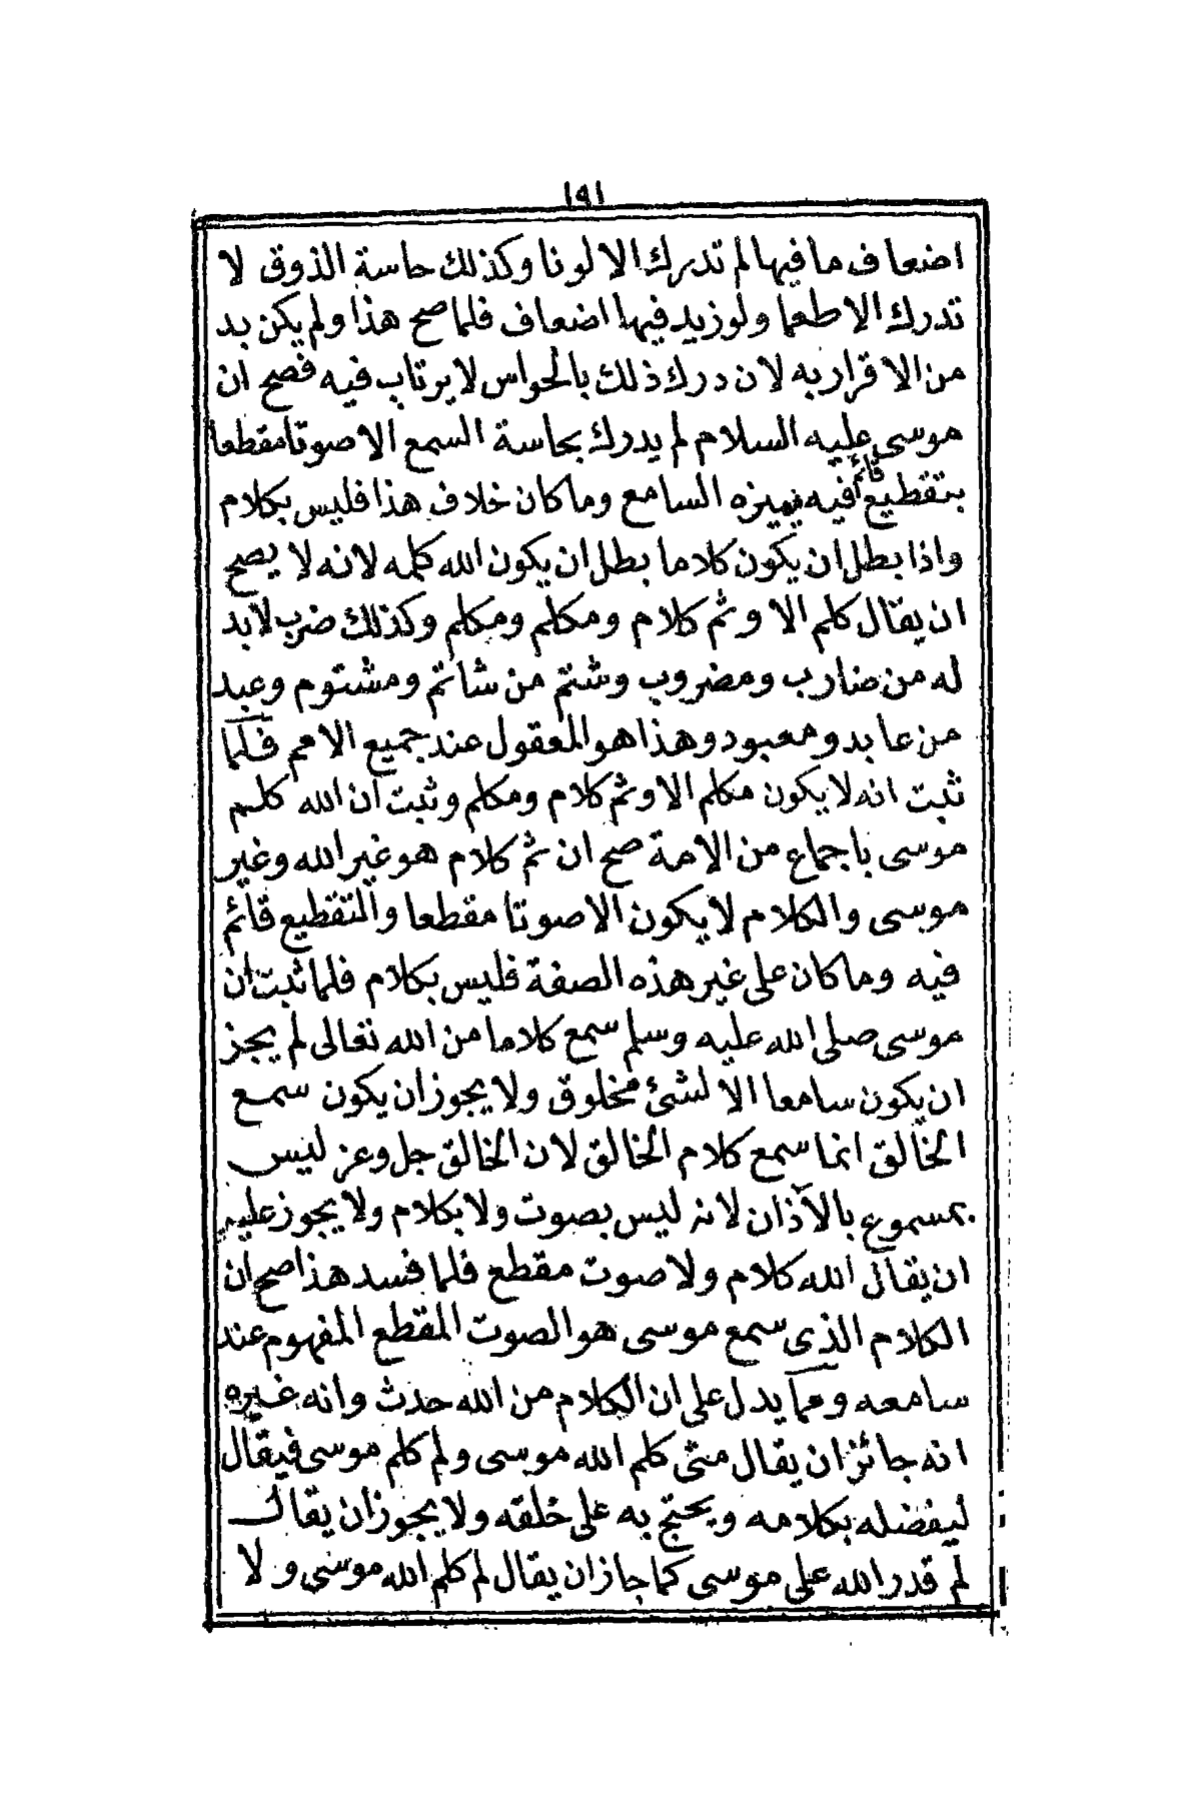 ١٩١
اضعاف ما فيها لم تدرك الا لونا وكذلك حاسة الذوق لا
تدرك الا طعما ولو زيد فيها اضعاف فلما صح هذا ولم يكن بد
من الاقرار به لان درك ذلك بالحواس لا يرتاب فيه فصح ان
موسى عليه السلام لم يدرك بحاسة السمع الا صوتا مقطعا
بتقطيع قائم فيه يميزه السامع وما كان خلاف هذا فليس بكلام
واذا بطل ان يكون كلاما بطل ان يكون الله كلمه لانه لا يصح
ان يقال كلم الا وثم كلام ومكلم ومكلم وكذلك ضرب لا بد
له من ضارب ومضروب وشتم من شاتم ومشتوم وعبد
من عابد ومعبود وهذا هو المعقول عند جميع الامم فلما
ثبت انه لا يكون مكلم الا وثم كلام ومكلم وثبت ان الله كلم
موسى باجماع من الامة صح ان ثم كلام هو غير الله وغير
موسى والكلام لا يكون الا صوتا مقطعا والتقطيع قائم
فيه وما كان على غير هذه الصفة فليس بكلام فلما ثبت ان
موسى صلى الله عليه وسلم سمع كلاما من الله تعالى لم يجز
ان يكون سامعا الا لشئ مخلوق ولا يجوز ان يكون سمع
الخالق انما سمع كلام الخالق لان الخالق جل وعز ليس
بمسموع بالآذان لانه ليس بصوت ولا بكلام ولا يجوز عليه
ان يقال الله كلام ولا صوت مقطع فلما فسد هذا صح ان
الكلام الذى سمع موسى هو الصوت المقطع المفهوم عند
سامعه ومما يدل على ان الكلام من الله حدث وانه غيره
انه جائز ان يقال متى كلم الله موسى ولم كلم موسى فيقال
ليفضله بكلامه ويحتج به على خلقه ولا يجوز ان يقال
لم قدر الله على موسى كما جاز ان يقال لم كلم الله موسى ولا